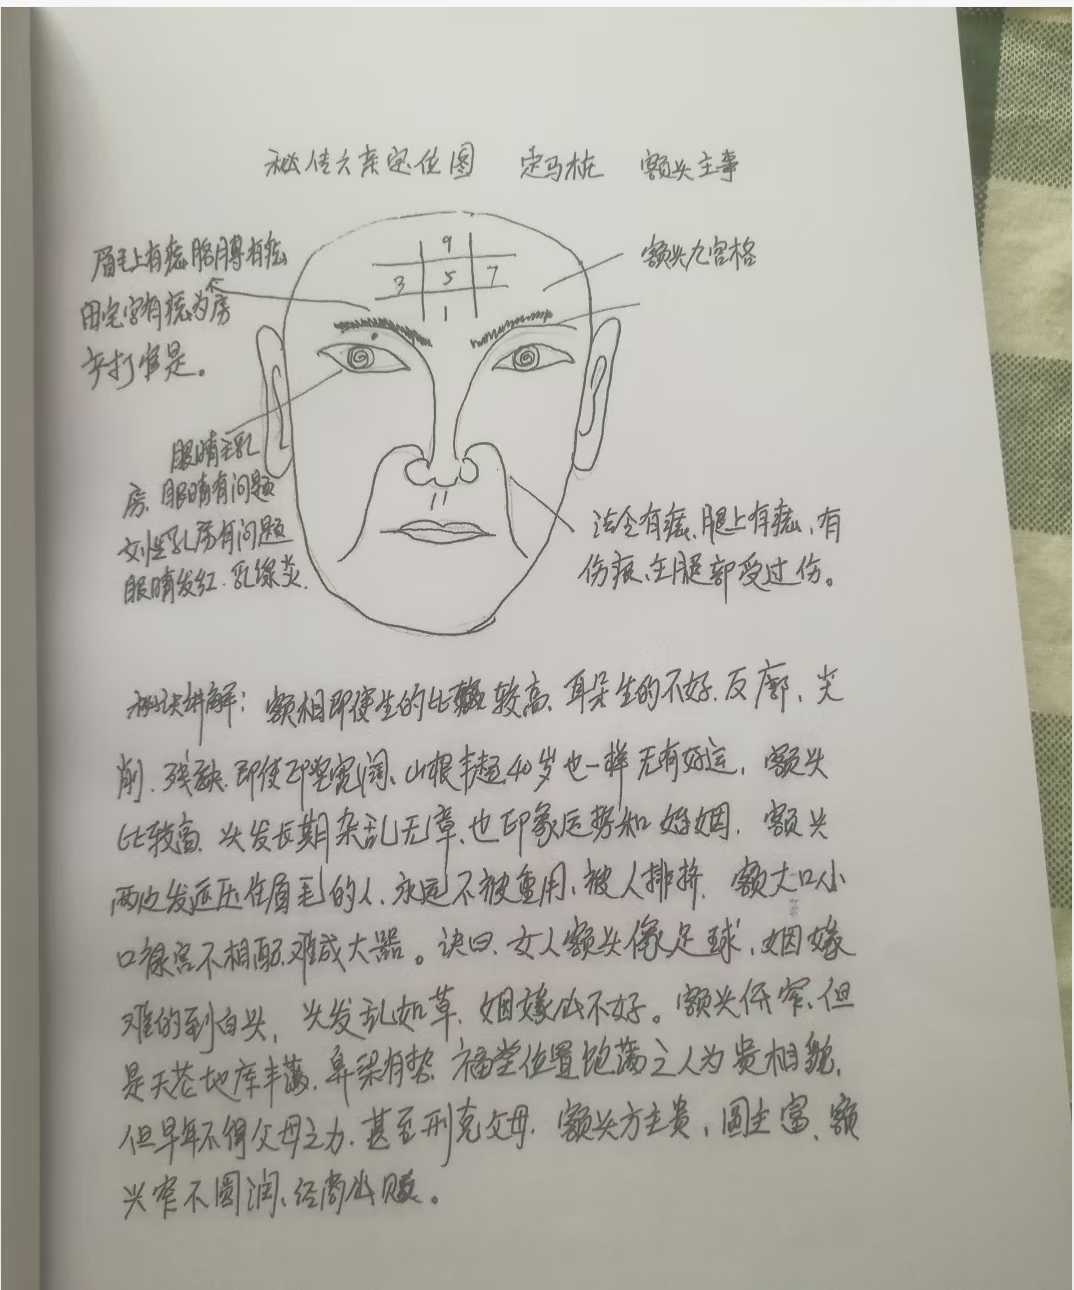 秘传六亲定位图 走马枕 额头主事
眉毛上有痣胳膊有痣
田宅宫有痣为房
产打官是。
额头九宫格
9
3 5 7
1
眼睛主乳
房.眼睛有问题
女性乳房有问题
眼睛发红.乳缐炎.
法令有痣.腿上有痣,有
伤痕、主腿部受过伤。
秘诀讲解:额相即使生的比较高.耳朵生的不好.反廓,尖
削.残缺.即使印堂宽阔、山根丰超40岁也一样无有好运,额头
比较高.头发长期杂乱无章.也印象运势和婚姻.额头
两边发返压住眉毛的人.永远不被重用、被人排挤.额大口小
口禄宫不相配.难成大器。诀曰.女人额头像足球,姻缘
难的到白头,头发乱如草.姻缘必不好。额头低窄、但
是天苍地库丰满.鼻梁有势.福堂位置饱满之人为贵相貌,
但早年不得父母之力.甚至刑克父母.额头方主贵,圆主富、额
头窄不圆润、经商必败。